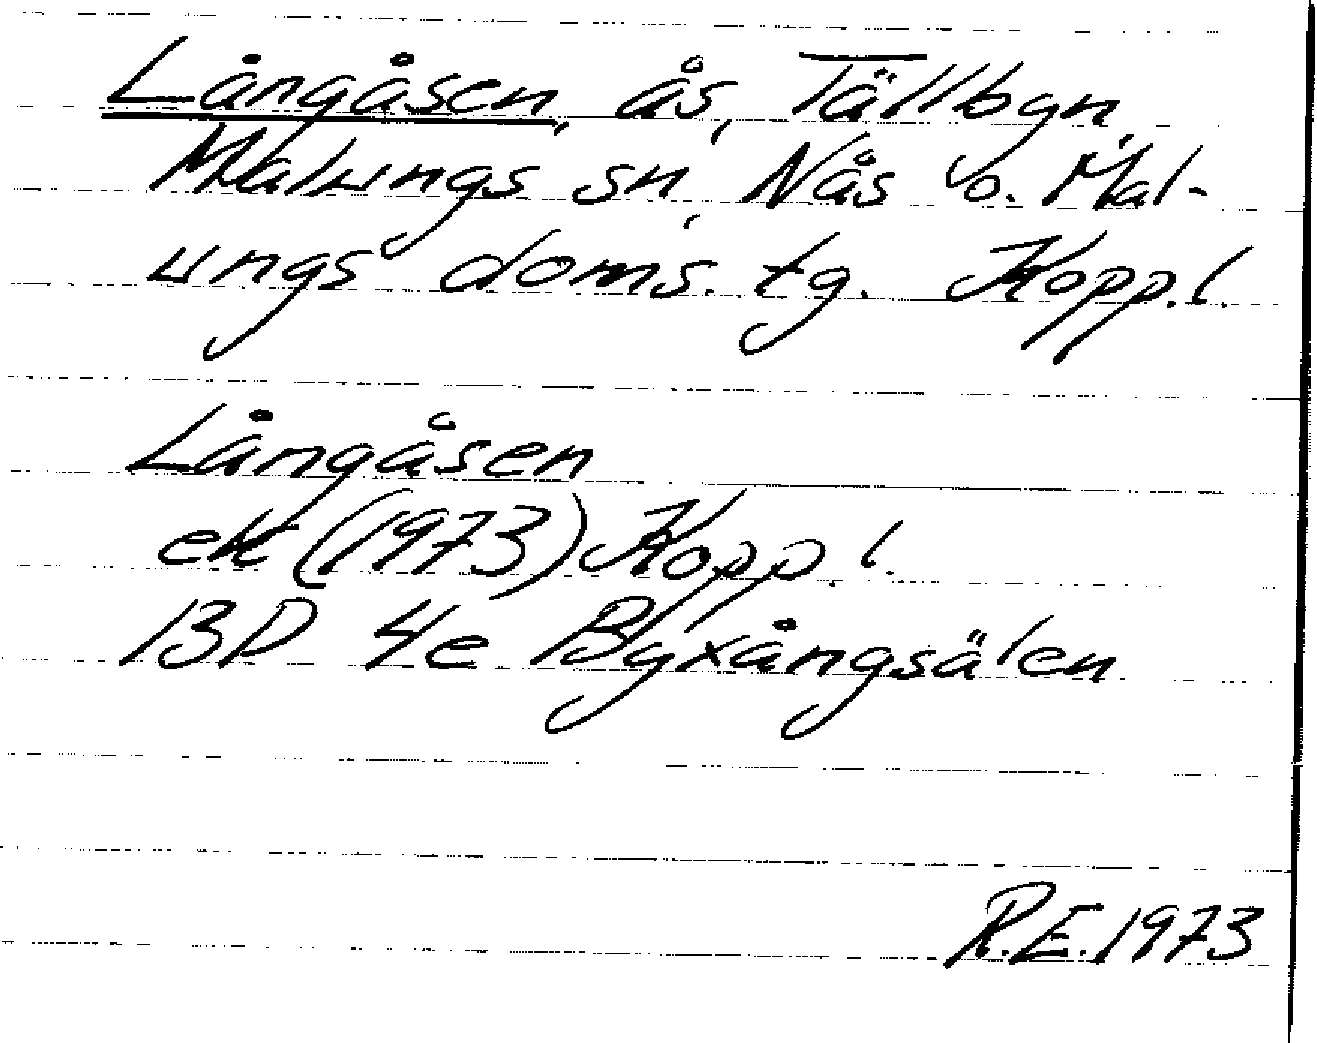 Långåsen, ås, Tällbyn,
Malungs sn, Nås o. Mal-
ungs doms. tg. Kopp. l.
Långåsen
ek (1973) Kopp. l.
13D 4e Byxångsälen
R.E. 1973